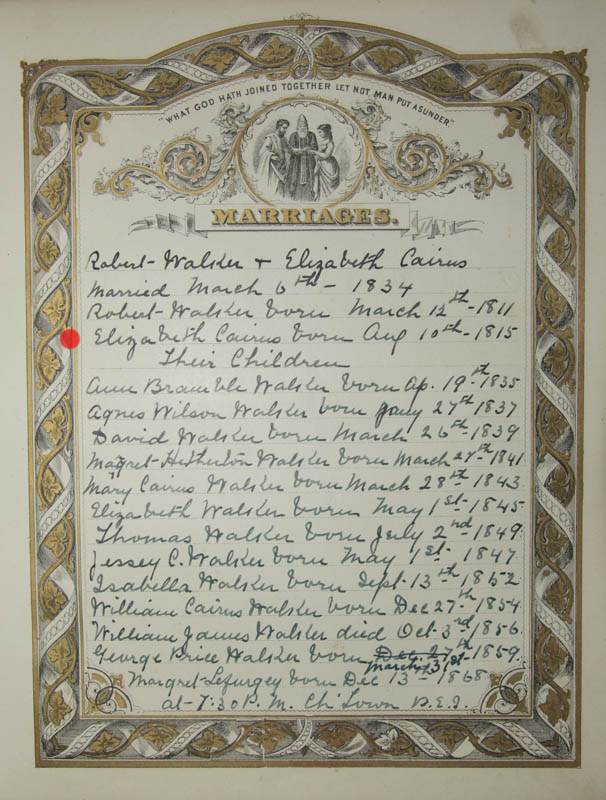 "WHAT GOD HATH JOINED TOGETHER LET NOT MAN PUT ASUNDER"
MARRIAGES.
Robert Walker + Elizabeth Cairns
Married March 6th - 1834
Robert Walker born March 12th - 1811
Elizabeth Cairns born Aug 10th - 1815
Their Children
Ann Bramble Walker born Ap. 19th 1835
Agnes Wilson Walker born Jany 27th 1837
David Walker born March 26th 1839
Magret Walker born March 1841
Mary Cairns Walker born March 28th 1843
Elizabeth Walker born May 1st - 1845
Thomas Walker born July 2nd 1849
Jessey C. Walker born May 1st - 1847
Isabella Walker born Sept 13th 1852
William Cairns Walker born Dec 27th 1854
William James Walker died Oct 3rd 1856
George Price Walker born Dec. 27th 1859
March 31st
Margret Lefurgey born Dec 13th 1868
at 7:30 P. M. Ch'Town P.E.I.